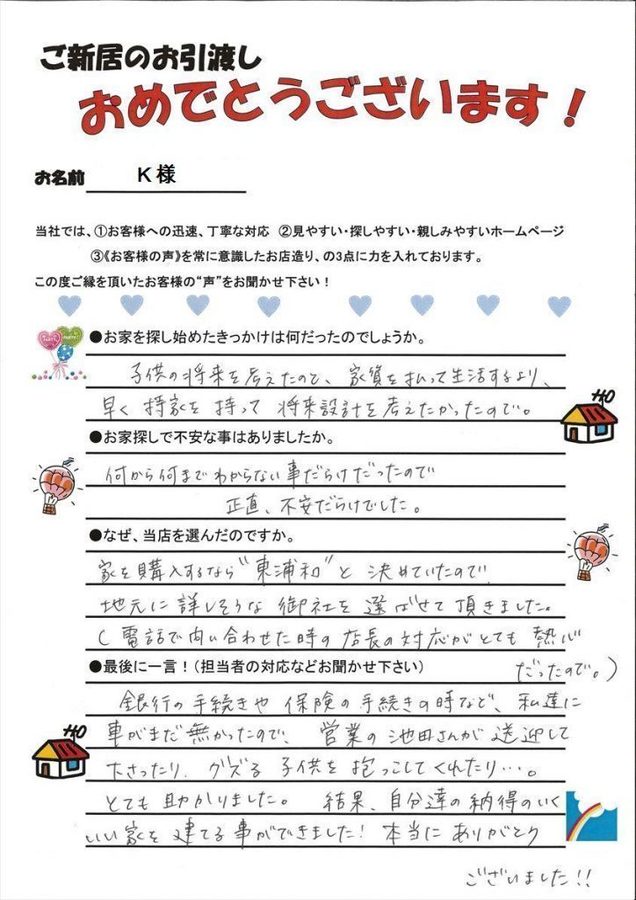 ご新居のお引渡し
おめでとうございます!
お名前 K様
当社では、①お客様への迅速、丁寧な対応 ②見やすい・探しやすい・親しみやすいホームページ
③《お客様の声》を常に意識したお店造り、の3点に力を入れております。
この度ご縁を頂いたお客様の“声”をお聞かせ下さい!
●お家を探し始めたきっかけは何だったのでしょうか。
子供の将来を考えたのと、家賃を払って生活するより、
早く持家を持って将来設計を考えたかったので。
●お家探しで不安な事はありましたか。
何から何までわからない事だらけだったので
正直、不安だらけでした。
●なぜ、当店を選んだのですか。
家を購入するなら“東浦和”と決めていたので
地元に詳しそうな御社を選ばせて頂きました。
(電話で問い合わせた時の店長の対応がとても熱心
だったので。)
●最後に一言!(担当者の対応などお聞かせ下さい)
銀行の手続きや保険の手続きの時など、私達に
車がまだ無かったので、営業の池田さんが送迎して
下さったり、グズる子供を抱っこしてくれたり…。
とても助かりました。結果、自分達の納得のいく
いい家を建てる事ができました!本当にありがとう
ございました!!